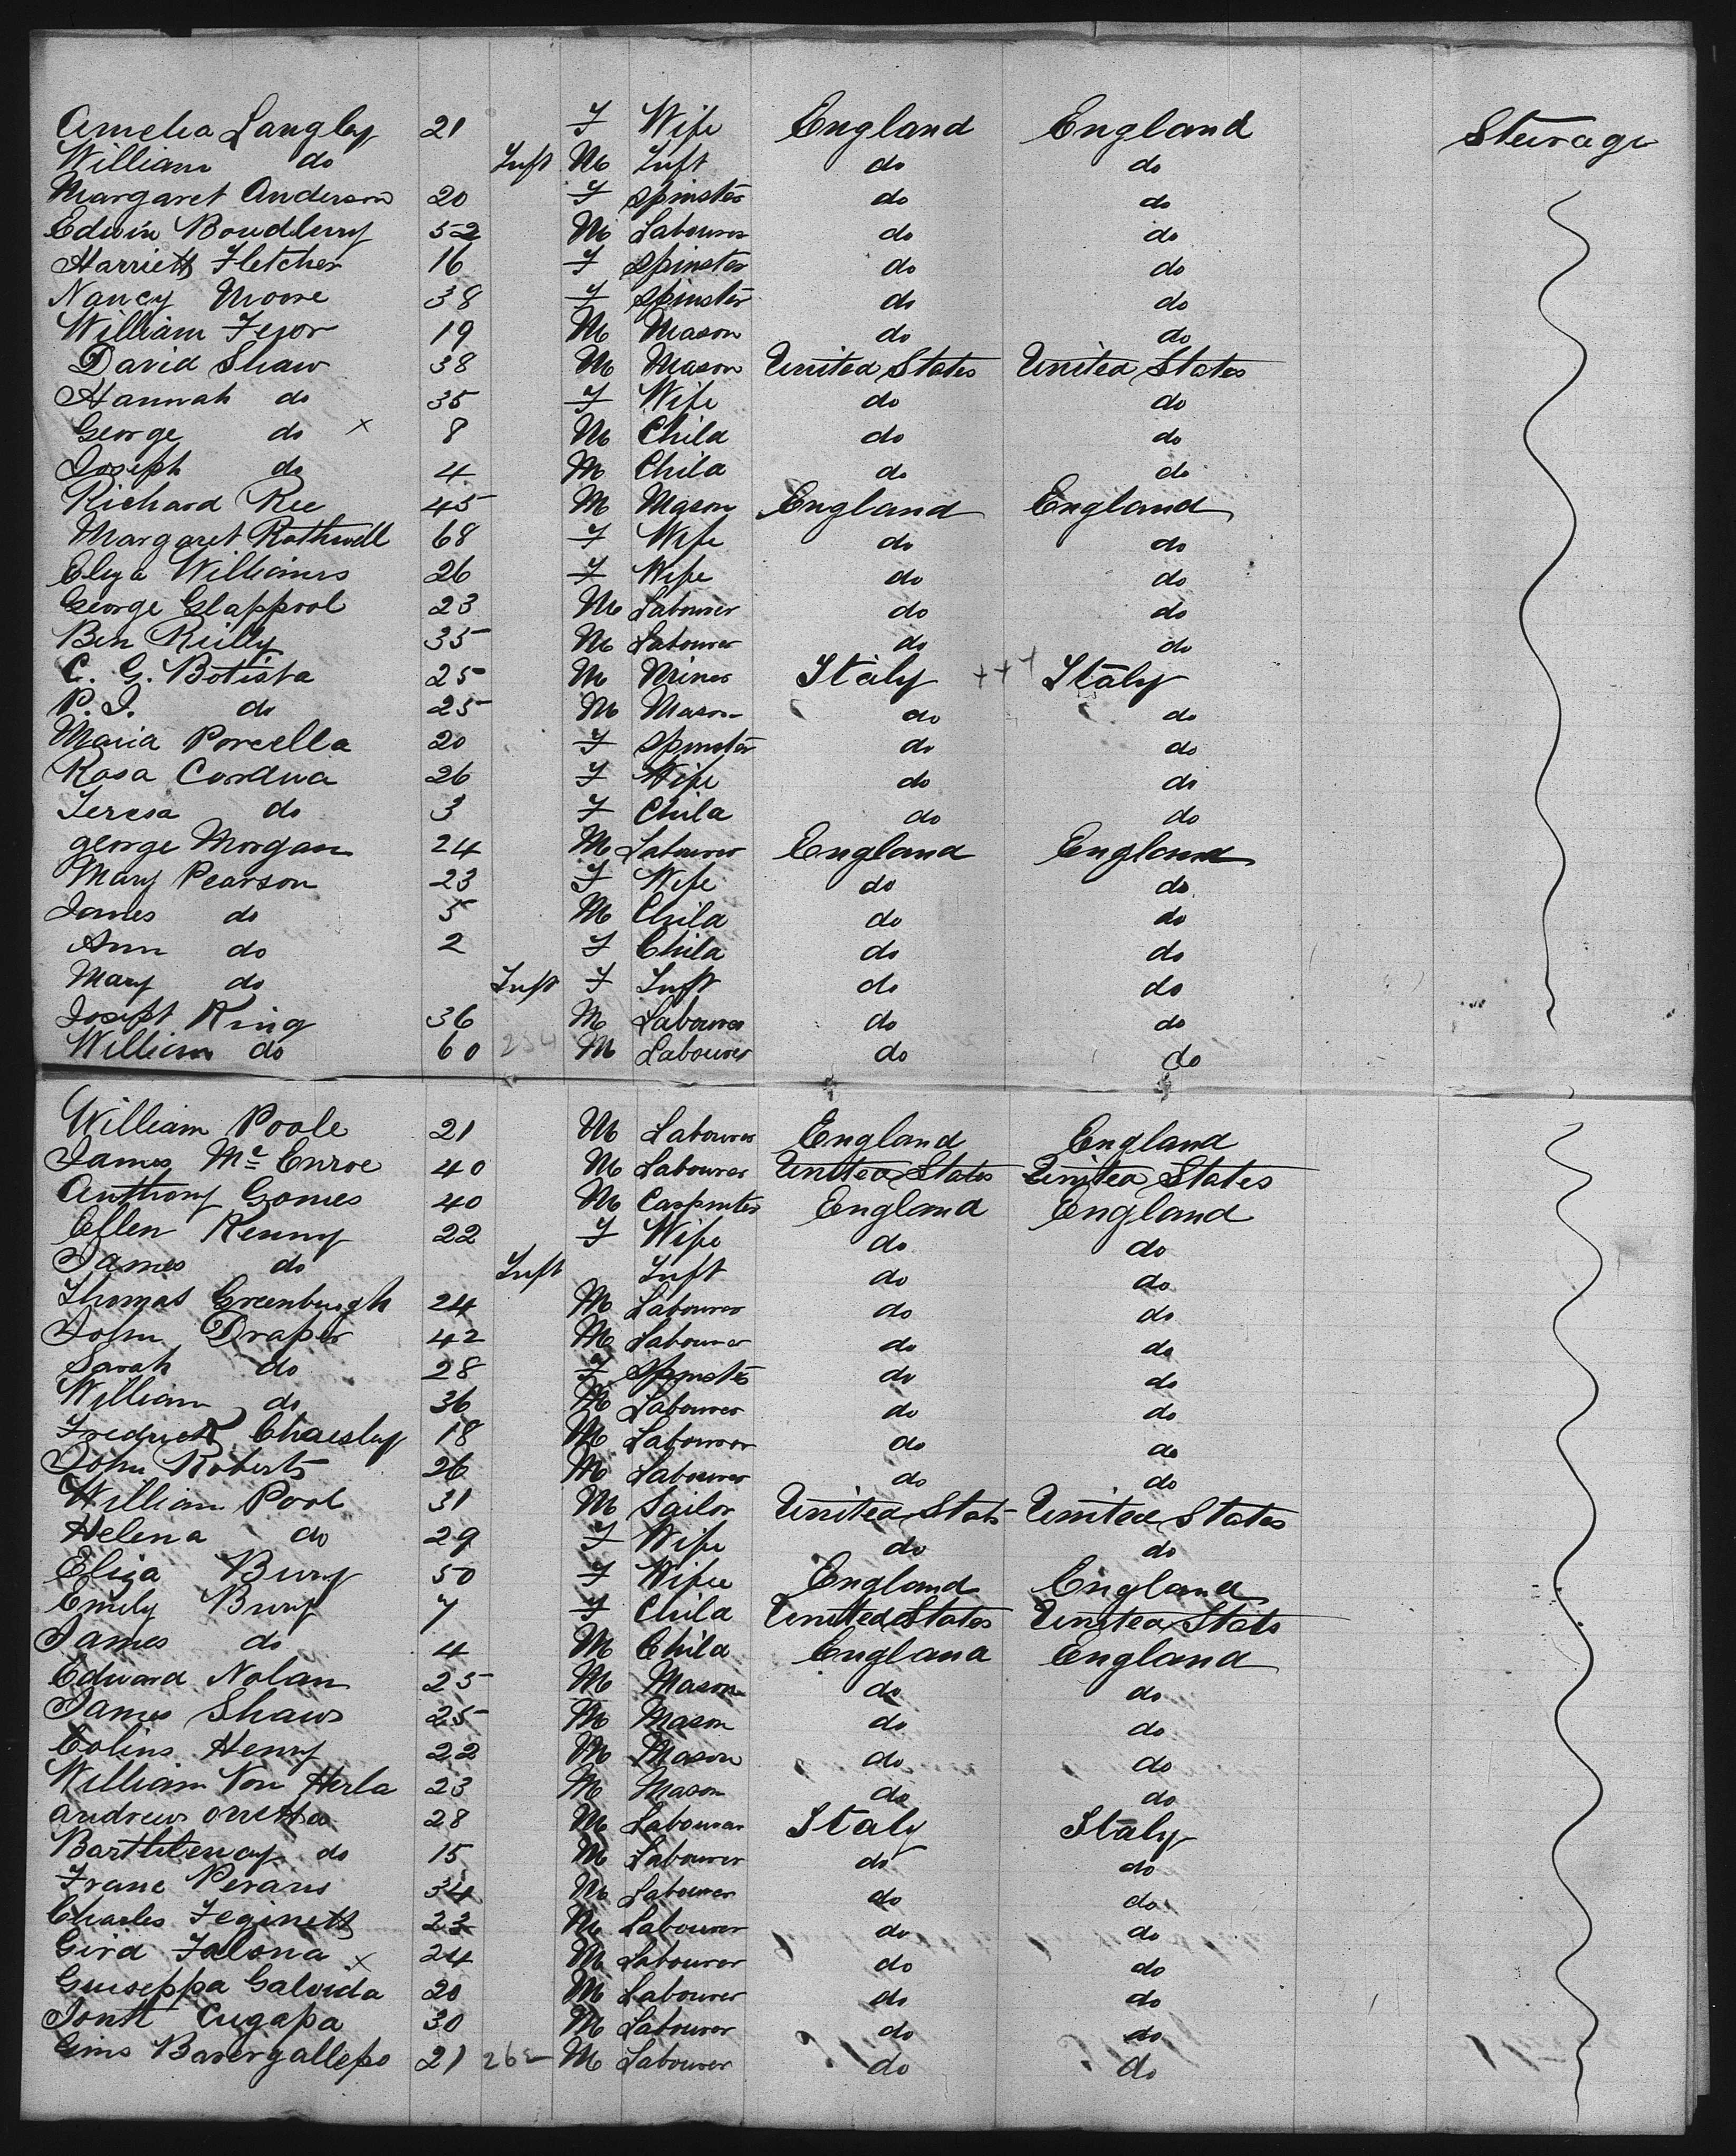 Amelia Langley 21 F Wife England England Steerage
William do Inft M Inft do do
Margaret Anderson 20 F Spinster do do
Edwin 52 M Labourer do do
Harriett Fletcher 16 F Spinster do do
Nancy Moore 38 F Spinster do do
William 19 M Mason do do
David Shaw 38 M Mason United States United States
Hannah do 35 F Wife do do
George do x 8 M Child do do
Joseph do 4 M Child do do
Richard Ree 45 M Mason England England
Margaret Rothwell 68 F Wife do do
Eliza Williams 26 F Wife do do
George Glappool 23 M Labourer do do
Ben Reilly 35 M Labourer do do
C. G. Botista 25 M Miner Italy +++ Italy
P. J. do 25 M Mason do do
Maria Porcella 20 F Spinster do do
Rosa 26 F Wife do do
Teresa do 3 F Child do do
George Morgan 24 M Labourer England England
Mary Pearson 23 F Wife do do
James do 5 M Child do do
Ann do 2 F Child do do
Mary do Inft F Inft do do
Joseph King 36 M Labourer do do
William do 60 234 M Labourer do do
William Poole 21 M Labourer England England
James Mc Enroe 40 M Labourer United States United States
Anthony Gomes 40 M Carpenter England England
Ellen Kenny 22 F Wife do do
James do Inft Inft do do
Thomas Greenburgh 24 M Labourer do do
John Draper 42 M Labourer do do
Sarah do 28 F Spinster do do
William do 36 M Labourer do do
Fredrick 18 M Labourer do do
John Roberts 26 M Labourer do do
William Pool 31 M Sailor United Stats United States
Helena do 29 F Wife do do
Eliza Bury 50 F Wife England England
Emily Bury 7 F Child United States United Stats
James do 4 M Child England England
Edward Nolan 25 M Mason do do
James Shaw 25 M Mason do do
Colins Henry 22 M Mason do do
William Von Herla 23 M Mason do do
Andrew 28 M Labourer Italy Italy
do 15 M Labourer do do
Franc 34 M Labourer do do
Charles 23 M Labourer do do
Gird Falona x 24 M Labourer do do
Guiseppa Galvida 20 M Labourer do do
Cugapa 30 M Labourer do do
21 262 M Labourer do do